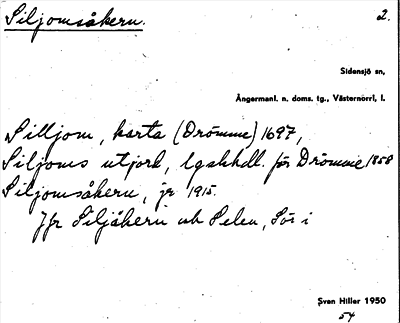 Siljomsåkern.
2.
Sidensjö sn,
Ångermanl. n. doms. tg., Västernorrl, l.
Silljom, karta (Drömme) 1697,
Siljoms utjord, lgakhdl. för Drömme 1858
Siljomsåkern, jr 1915.
Jfr Siljåkern och Selen, Sör i
Sven Hiller 1950
54